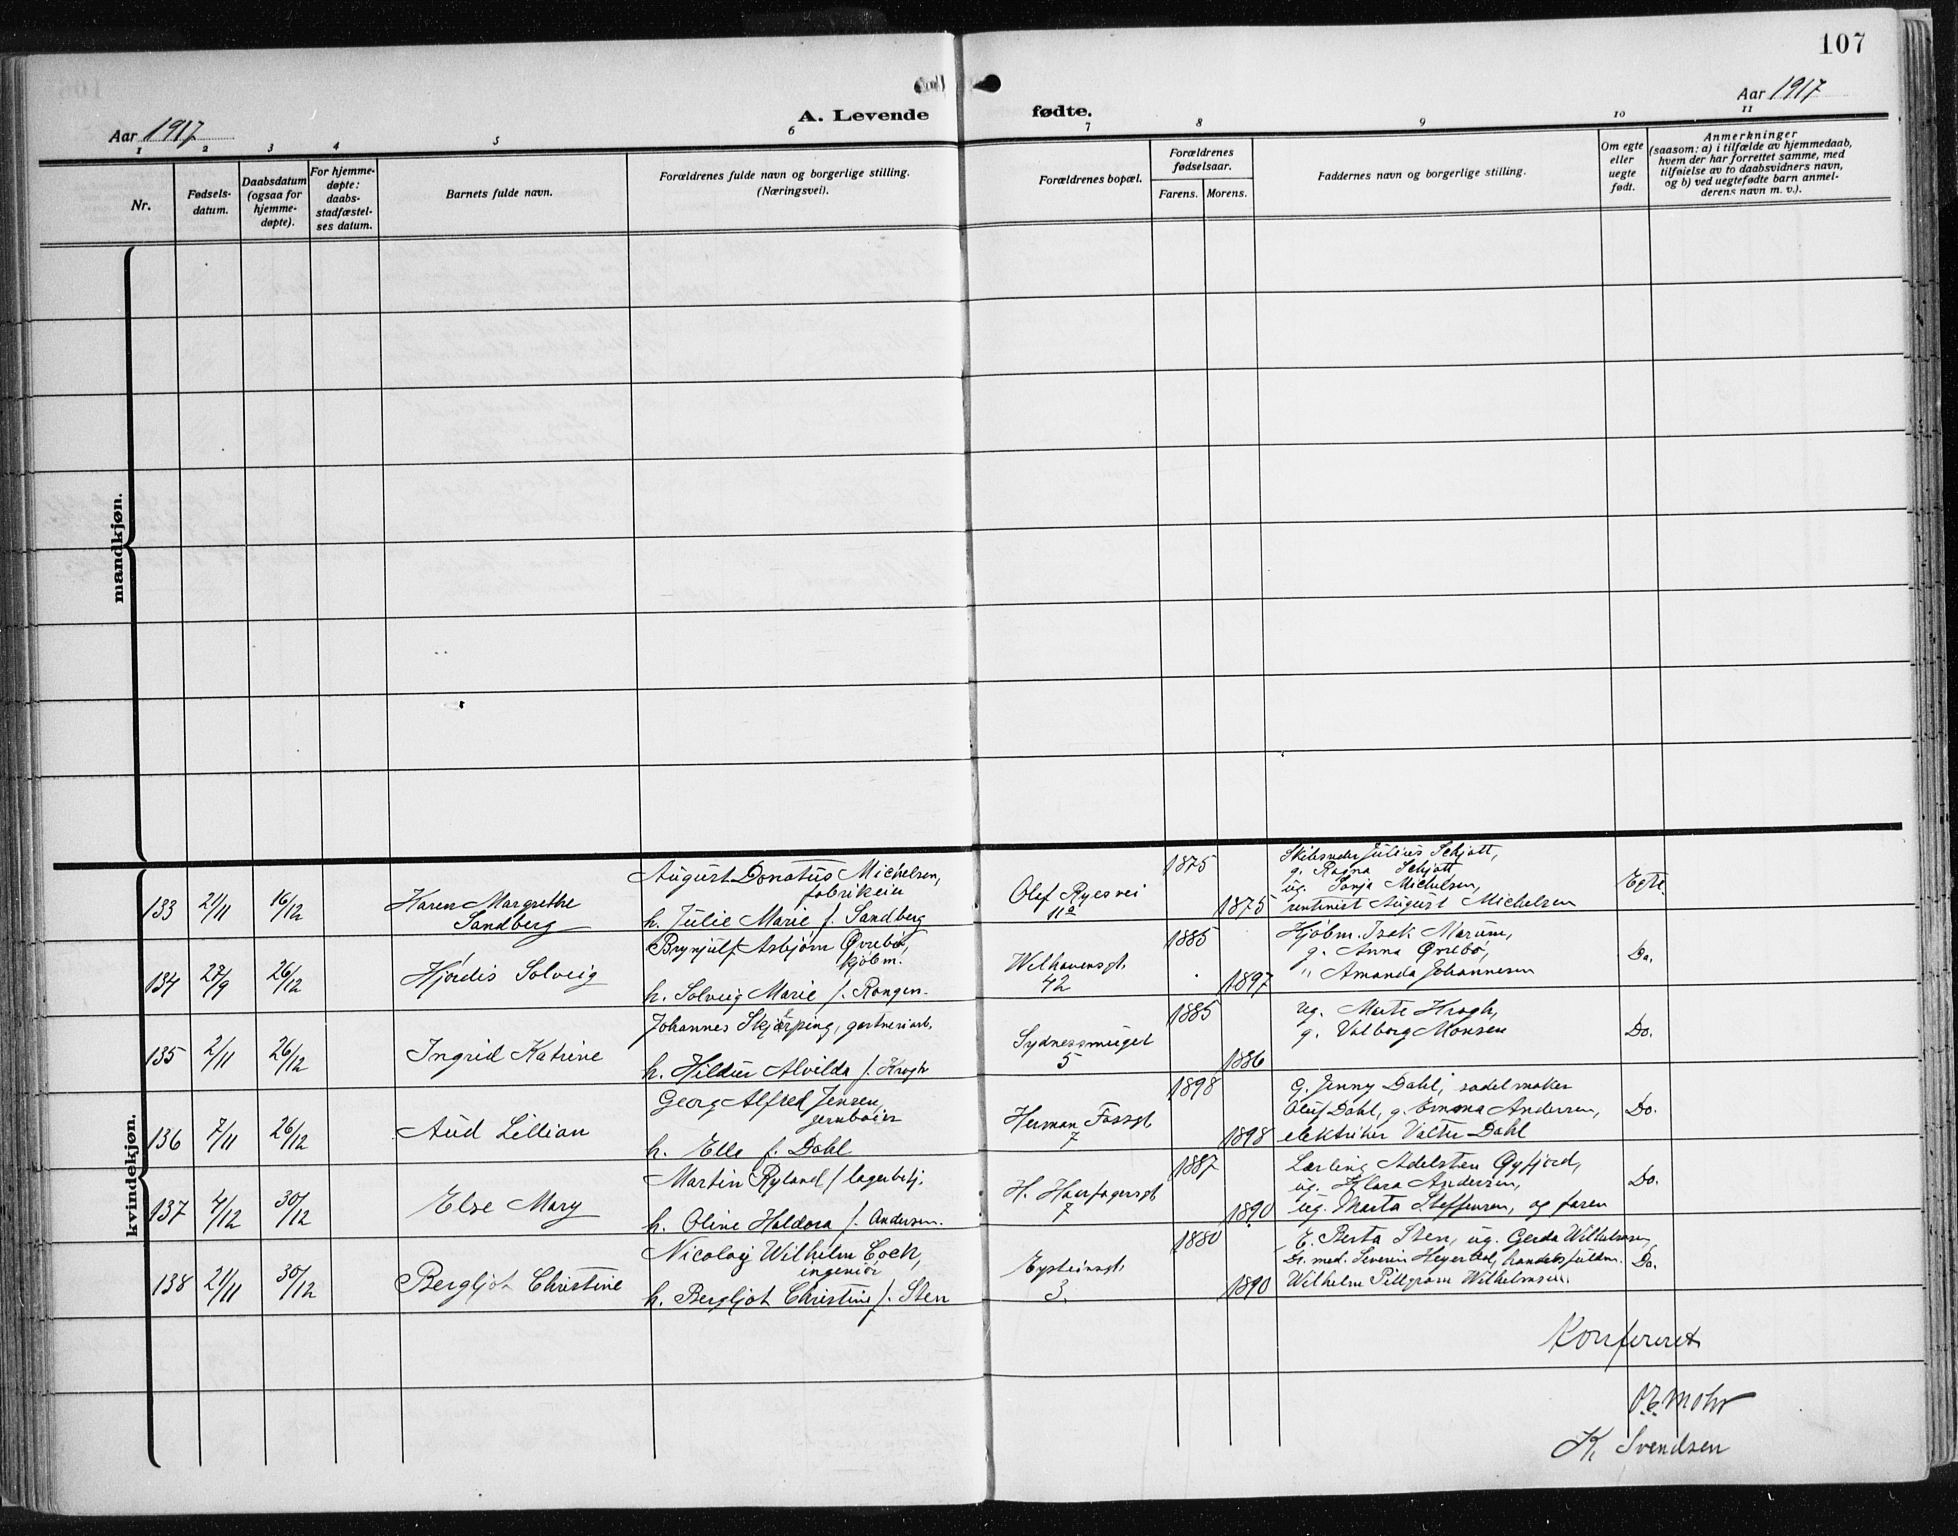 107
Aar 1917
A. Levende fødte.
Aar 1917
1 2 3 4 5 6 7 8 9 10 11
Nr.
Fødsels-
datum.
Daabsdatum
(ogsaa for
hjemme-
døpte).
For hjemme-
døpte:
daabs-
stadfæstel-
ses datum.
Barnets fulde navn.
Forældrenes fulde navn og borgerlige stilling.
(Næringsvei).
Forældrenes bopæl.
Forældrenes
fødselsaar.
Farens. Morens.
Faddernes navn og borgerlige stilling.
Om egte
eller
uegte
født.
Anmerkninger
(saasom: a) i tilfælde av hjemmedaab,
hvem der har forrettet samme, med
tilføielse av to daabsvidners navn,
og b) ved uegtefødte barn anmel-
derens navn m. v.).
mandkjøn.
kvindekjøn.
133 21/11 16/12
Karen Margrethe
Sandberg
August Donatus Michelsen,
fabrikeier
h. Julie Marie f. Sandberg
Olaf Ryesvei
11a
1875
1875
Skibsreder Julius Schjøtt,
g. Ragna Schjøtt,
ug. Sonja Michelsen,
rentenist August Michelsen
Egte
134 27/9 26/12
Hjördis Solveig
Brynjulf Asbjørn Øvrebø,
kjøbm.
h. Solveig Marie f. Rongen.
Welhavensgt.
42
1885
1897
Kjøbm. Isak Marum,
g. Anna Øvrebö,
" Amanda Johannesen
Do.
135 2/11 26/12
Ingrid Katrine
Johannes Skjærping, gartneriarb.
h. Hildur Alvilda f. Krogh
Sydnessmuget
5
1885
1886
ug. Marte Krogh,
g. Valborg Monsen
Do.
136 7/11 26/12
Aud Lillian
Georg Alfred Jensen,
h. Ella f. Dahl
Herman Fossgt
7
1898
1898
G. Jenny Dahl, sadelmaker
Oluf Dahl, g. Emma Andersen,
elektriker Valter Dahl
Do.
137 4/12 30/12
Else Mary
Martin Ryland / lagerbetj.
h. Oline Haldora f. Andersen.
H. Haarfagersgt
7
1887
1890
Lærling Adelsten
ug. Klara Andersen,
ug. Marta Steffensen, og faren
Do.
138 21/11 30/12
Bergljot Christine
Nicolay Wilhelm Cock,
ingeniör
h. Bergljot Christine f. Sten
Eysteinsgt.
3.
1880
1890
E. Berta Sten, ug. Gerda Wilhelmsen,
St. med. Severin Heyerdal, handelsfuldm.
Wilhelm Pillgram Wilhelmsen.
Do.
Konfereret
Mohr
K. Svendsen